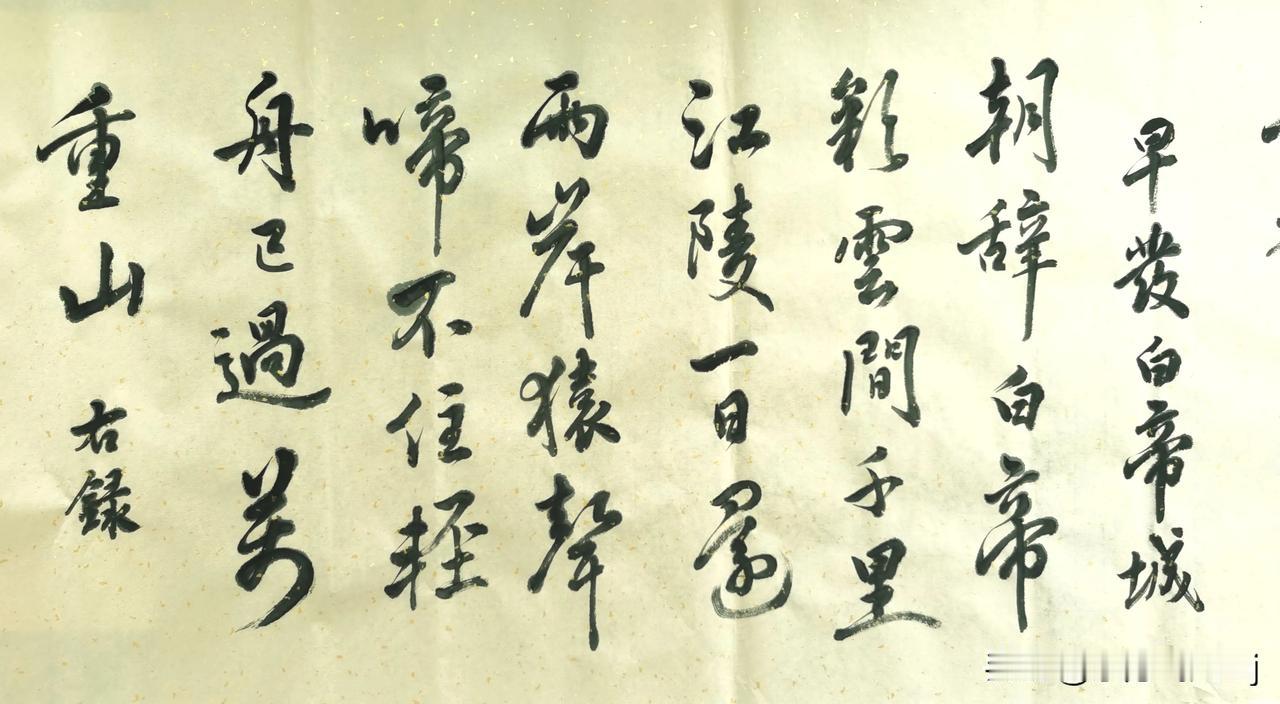 早發白帝城
朝辞白帝
彩雲間千里
江陵一日還
兩岸猿聲
啼不住輕
舟已過萬
重山 右録